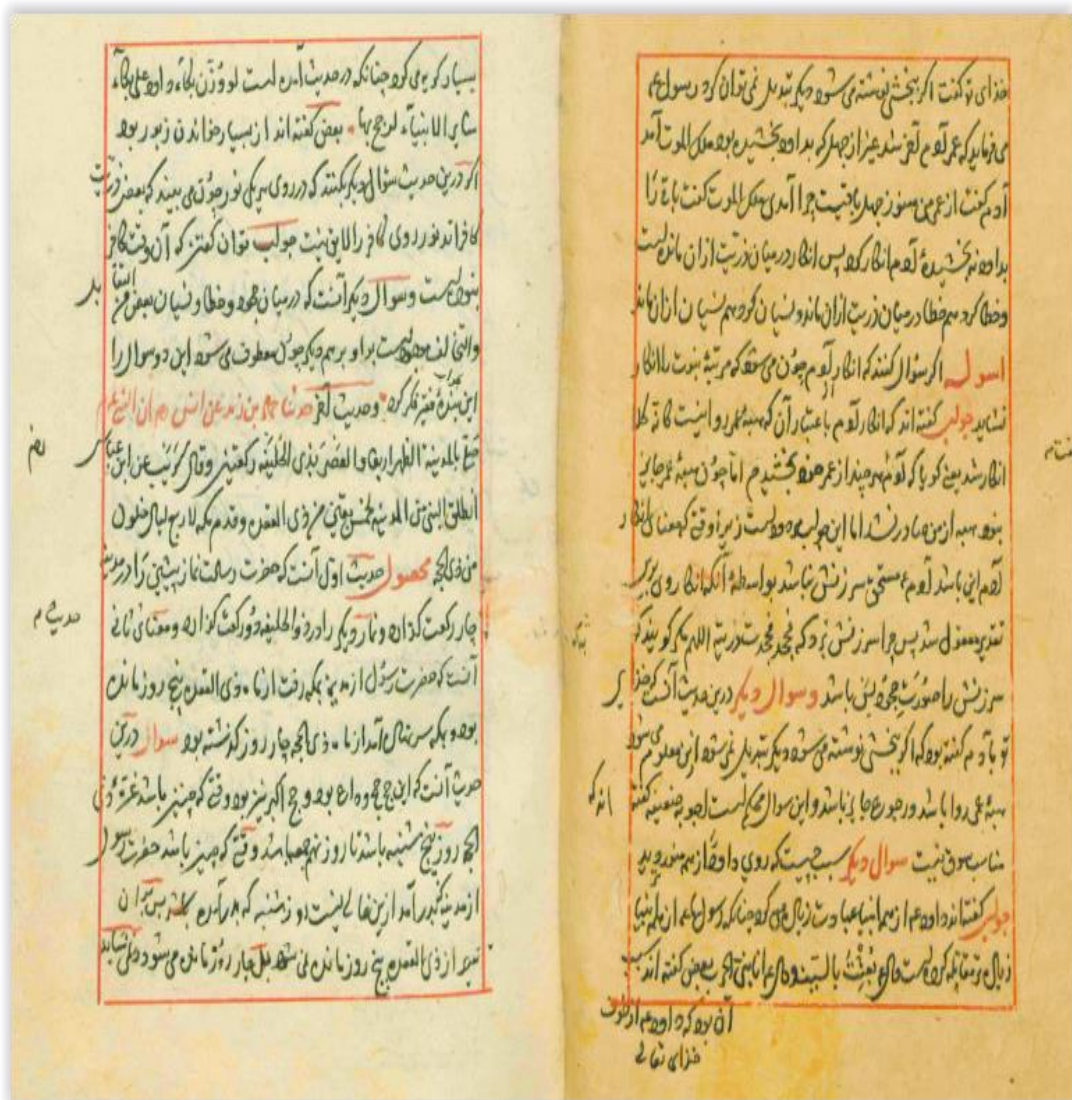 خدای تو گفت اگر بخشی نوشته می شود دیگر تبدیل نمی توان کرد رسول عم
می فرماید که عمر آدم آخر شد غیر از چهل که بداود بخشیده بود ملک الموت آمد
آدم گفت از عمر من هنوز چهل باقیست چرا آمدی ملک الموت گفت باقی را
بداود نه بخشیدهٔ آدم انکار کرد پس انکار در میان ذریت از ان مانده است
وخطا کرد هم خطا در میان ذریت از ان ماند ونسیان کرد هم نسیان از ان ماند
اسوله اگر سؤال کنند که انکار آدم چون می شود که مرتبهٔ نبوت را انکار
نشاید جواب گفته اند که انکار آدم باعتبار آن که هبهٔ عمر روا نیست کانه کلا
انکار شد یعنی کویا که آدم هر چند از عمر خود بخشیدم اما چون هبهٔ عمر جایز
نبود هبه از من صادر نشد اما این جواب مردود است زیرا وقتی که معنای انکار
آدم این باشد آدم عم مستحق سرزنش نباشد بواسطهٔ آنکه انکار روی بر
تقدیر معقول شد پس چرا سرزنش برد که فجحد فجحدت ذریته اللهم مگر کویند که
سرزنش را صورت جحود بس باشد وسوال دیگر درین حدیث آنست که خدای
تو بآدم گفته بود که اگر بخشی نوشته می شود دیگر تبدیل نمی شود ازین معلوم می شود
هبهٔ عمر روا باشد ورجوع جایز نباشد واین سوال محکم است اجوبه ضعیفه گفته
اند که
مناسب سوق نیست سوال دیگر سبب چیست که روی داود از همه منورتر دید
جواب گفته اند داود عم از همه انبیا عبادت زیاده می کرد چنانکه رسول عم از همه انبیا
زیاده تر مقاتله کرده است قال ع بعثت بالسیف وقال ع انا نبی الحرب بعض گفته اند سبب
آن بود که داود عم از خوف
خدای تعالی
بسیار کریه می کرد چنانکه در حدیث آمده است لو وزن بکاء داود علی بکاء
سایر الانبیاء لرجح بها بعض گفته اند از بسیار خواندن زبور بود
اگر درین حدیث سؤال دیگر بکنند که در روی هر یکی نور چون می بیند که بعض ذریت
کافراند نور روی کافر را لایق نیست جواب توان گفتن که آن وقت کافر
نبوده است وسوال دیگر آنست که در میان جحود وخطا ونسیان بعض
این بندهٔ فقیر فکر کرد وحدیث آخر حدثنا حماد بن زید عن انس رض ان النبی عم
صلی بالمدینة الظهر اربعا والعصر بذی الحلیفة رکعتین وقال کریب عن ابن عباس
رضم
انطلق النبی من المدینة لخمس بقین من ذی القعدة وقدم مکة لاربع لیال خلون
من ذی الحجه محصول حدیث اول آنست که حضرت رسالت نماز پیشین را در مدینه
چار رکعت کذارد ونماز دیگر را در ذو الحلیفه دو رکعت کذارد ومعنای ثانی
حدیث
آنست که حضرت رسول از مدینه بمکه رفت از ماه ذی القعده پنج روز مانده
بود وبمکه آمد از ماه ذی الحجه چار روز کذشته بود سوال درین
حدیث آنست که این حج حج وداع بود وحج اکبر نیز بود وقتی که چنین باشد غرهٔ ذی
الحجه روز پنج شنبه باشد تا روز نهم جمعه باشد وقتی که چنین باشد حضرت رسول
پس برآن
تقدیر از ذی القعده پنج روز مانده نمی شود بلکه چار روز مانده می شود